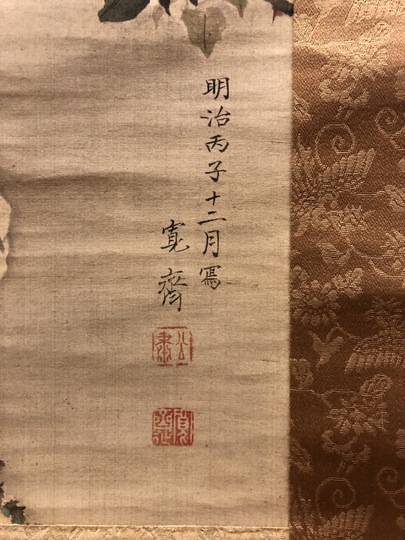 明治丙子十二月寫
寛齋